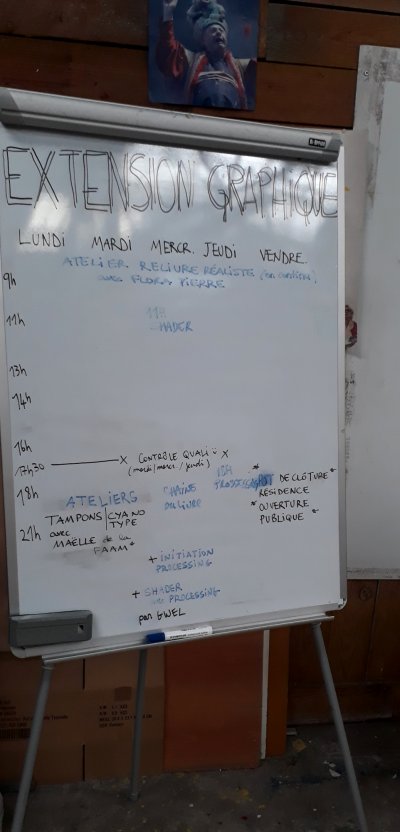 EXTENSION GRAPHIQUE
LUNDI MARDI MERCR. JEUDI VENDRE.
ATELIER RELIURE RÉALISTE (en continu)
avec FLORA PIERRE
9h
11h
11H
SHADER
13h
14h
16h
17h30 X CONTRÔLE QUALI X
(mardi/mercr./jeudi)
18h
18H
ATELIERS
CHAÎNE
DU LIVRE
* DE CLÔTURE *
RÉSIDENCE
* OUVERTURE
PUBLIQUE *
21h
TAMPONS CYANO
TYPE
avec
MAËLLE de la
FAAM *
+ INITIATION
PROCESSING
+ SHADER
PROCESSING
par GWEL